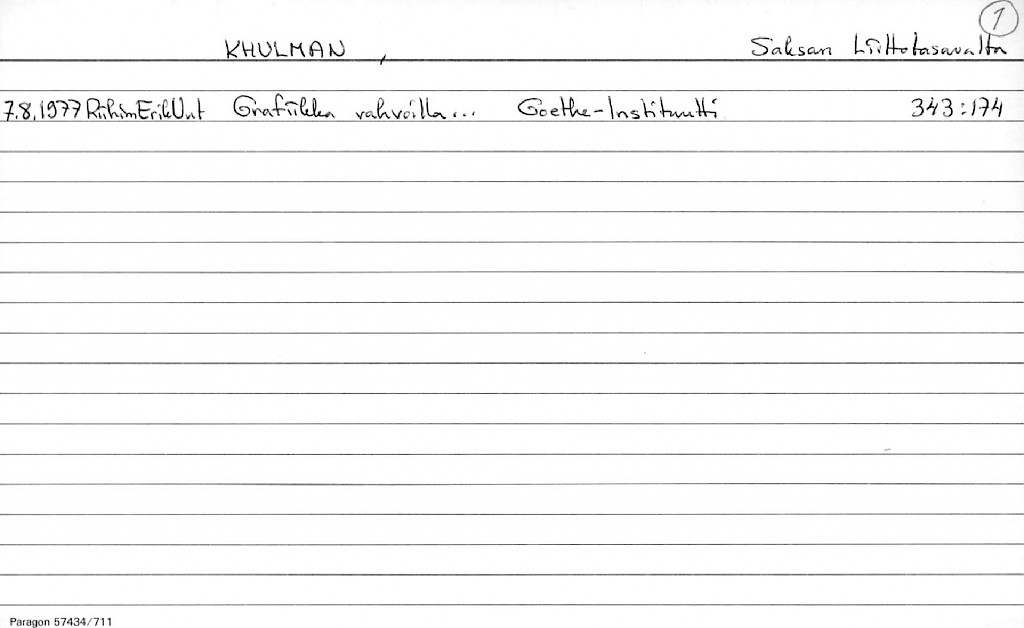 1
KHULMAN , Saksan Liittotasavalta
7.8.1977 RiihimErikUut Grafiikka vahvoilla... Goethe-Instituutti 343:174
Paragon 57434/711